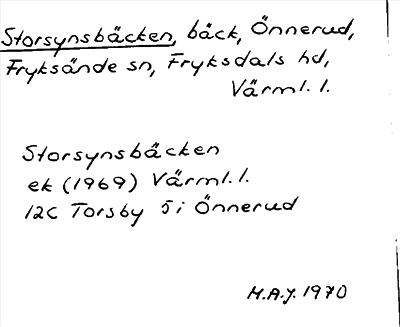 Storsynsbäcken, bäck, Önnerud,
Fryksände sn, Fryksdals hd,
Värml. l.
Storsynsbäcken
ek (1969) Värml. l.
12C Torsby 5i Önnerud
M.A.J. 1970